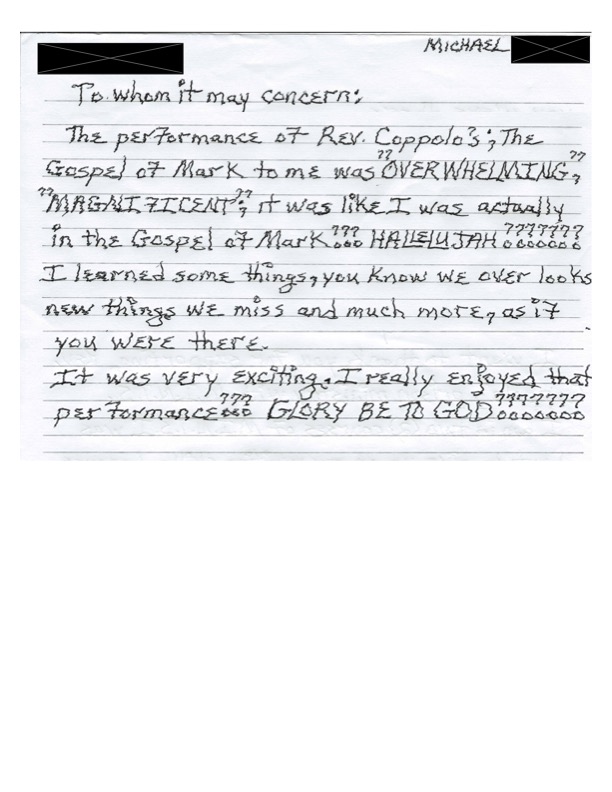 MICHAEL
To whom it may concern:
The performance of Rev. Coppolo's; The
Gospel of Mark to me was "OVERWHELMING",
"MAGNIFICENT"; it was like I was actually
in the Gospel of Mark!!! HALLELUJAH!!!!!!!
I learned some things, you know we over looks
new things we miss and much more, as if
you were there.
It was very exciting. I really enjoyed that
performance!!! GLORY BE TO GOD!!!!!!!